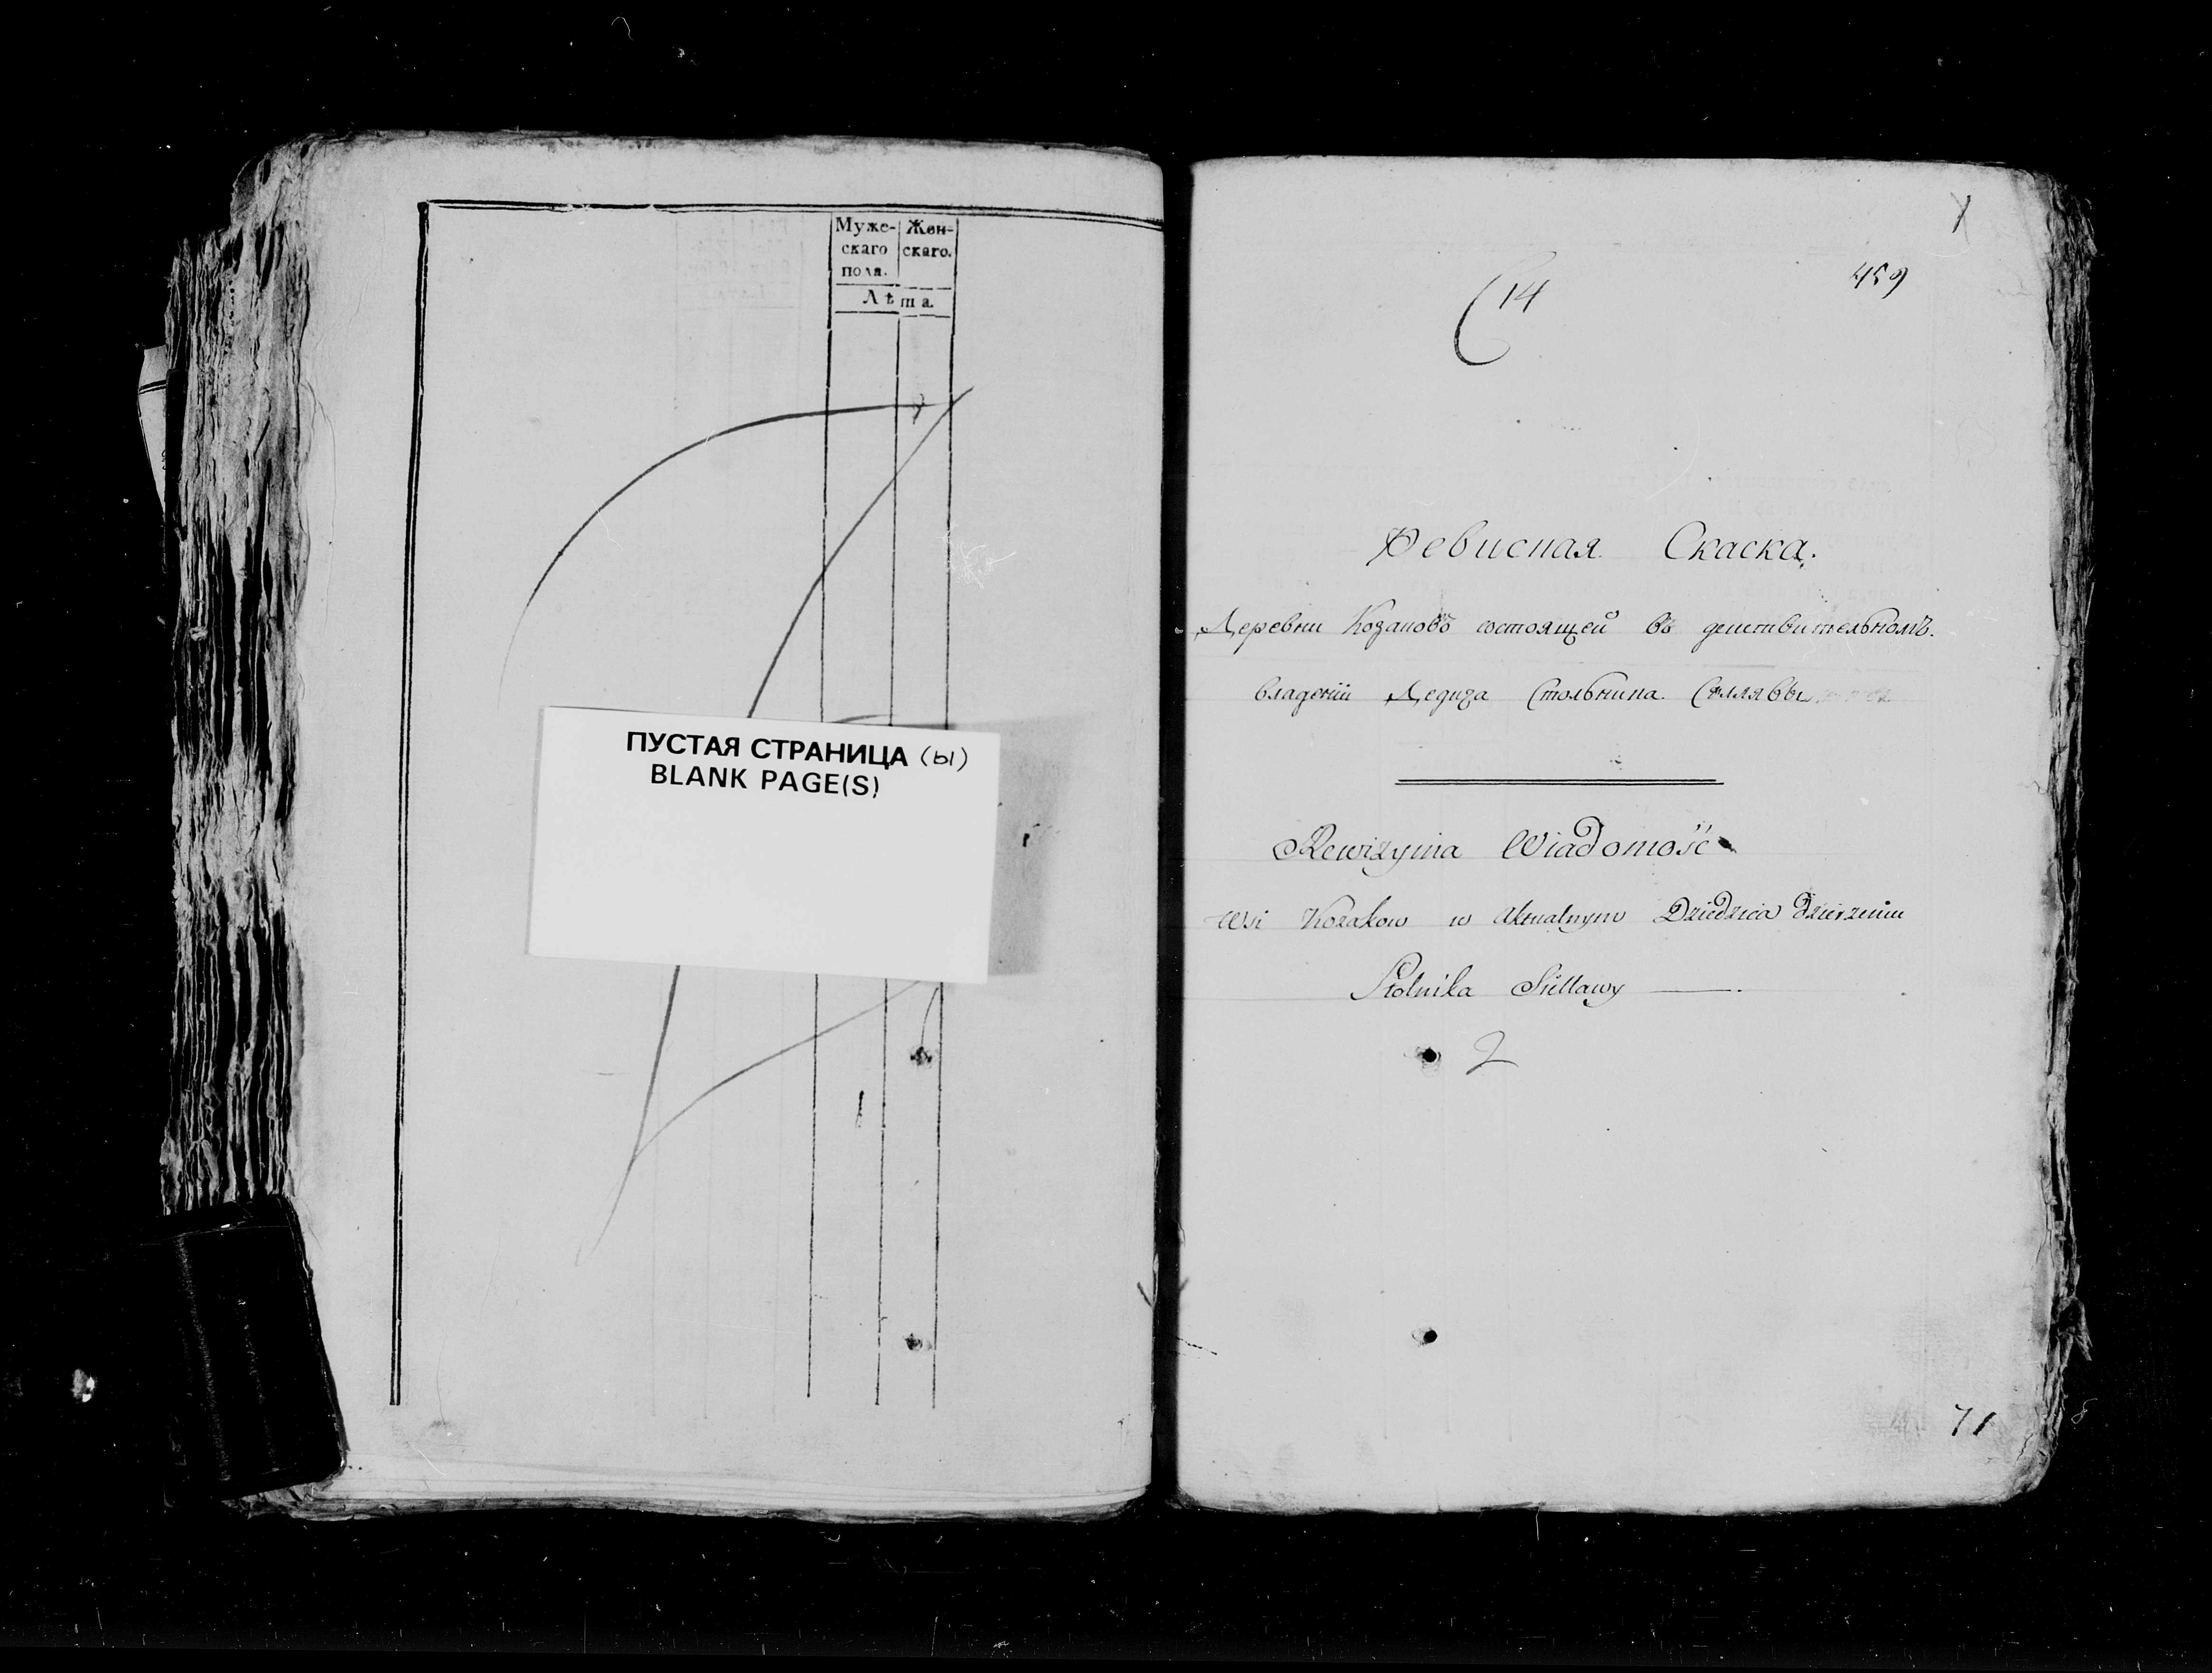 Муже-
скаго
пола.
Жен-
скаго.
Лѣта.
ПУСТАЯ СТРАНИЦА (ы)
BLANK PAGE(S)
459
14
Ревисная Скаска.
Деревни Козаковъ состоящей въ действительномъ
владенїи Дедица Стольника
Rewizyina Wiadomość
Wsi Kozakow w Aktualnym Dziedzica Dzierzeniu
Stolnika Sillawy
2
71